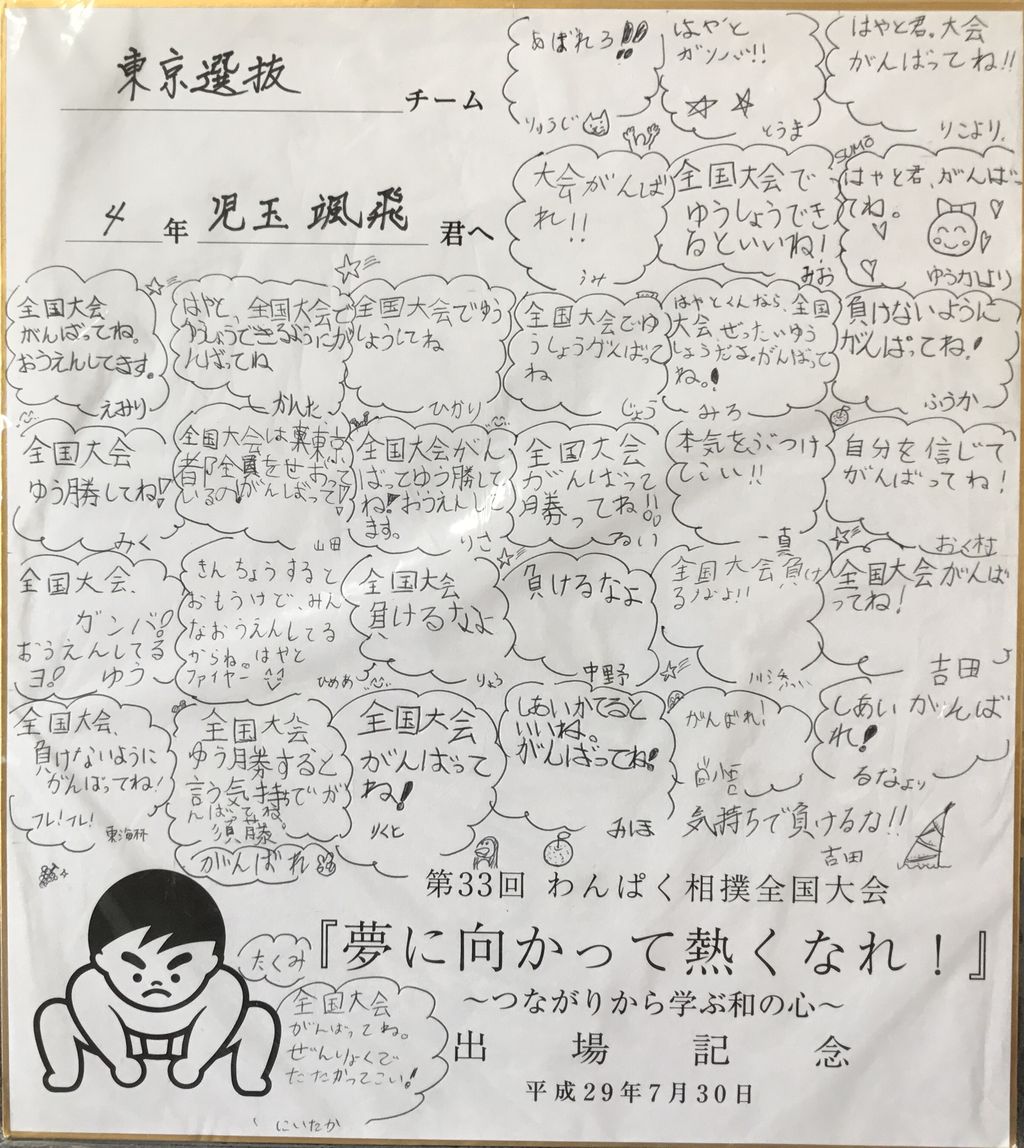 東京選抜 チーム
4 年 児玉 颯飛 君へ
あばれろ!!
りゅうじ
はやと
ガンバ!!
とうま
はやと君。大会
がんばってね!!
りこより.
大会がんば
れ!!
うみ
全国大会で
ゆうしょうでき
るといいね!
みお
SUMŌ
はやと君、がんばっ
てね。
ゆうかより
全国大会
がんばってね。
おうえんしてます。
えみり
はやと、全国大会で
ゆうしょうできるようにが
んばってね
かんた
全国大会でゆう
しょうしてね
ひかり
全国大会でゆ
うしょうがんばって
ね
じょう
はやとくんなら、全国
大会、ぜったいゆう
しょうださ。がんばって
ね。!
みろ
負けないように
がんばってね!
ふうか
全国大会
ゆう勝してね!
みく
全国大会は東京
都全員をせおって
いるの!がんばって!
山田
全国大会がん
ばってゆう勝して
ね!おうえんして
ます。
りさ
全国大会
がんばって
勝ってね!!
るい
本気をぶつけ
てこい!!
一真
自分を信じて
がんばってね!
おく村
全国大会、
ガンバ!
おうえんしてる
ヨ! ゆう
きんちょうすると
おもうけど、みん
なおうえんしてる
からね。はやと
ファイヤー
ひめあ
全国大会
負けるなよ
りょう
負けるなよ
中野
全国大会負け
るなよ!!
全国大会がんば
ってね!
吉田
全国大会、
負けないように
がんばってね!
フレ!フレ!
東海林
全国大会
ゆう勝すると
言う気持ちでが
んばってね。
須藤
がんばれ
全国大会
がんばって
ね!
りくと
しあいかてると
いいね。
がんばってね!
みほ
がんばれ!
尚悟
しあいがんば
れ!
るなより
気持ちで負けるな!!
吉田
第33回 わんぱく相撲全国大会
『夢に向かって熱くなれ!』
～つながりから学ぶ和の心～
出場記念
平成29年7月30日
たくみ
全国大会
がんばってね。
ぜんりょくで
たたかってこい!
にいたか